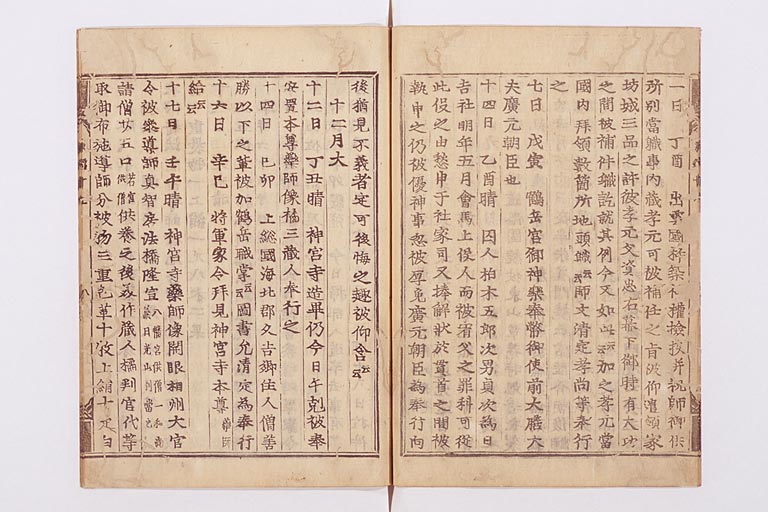 一日 丁酉 出雲國杵築社權檢挍并祝師御供
所別當職事内藏孝元可被補任之旨被仰遣領家
坊城三品之許彼孝元父資忠右幕下御時有大功
之間被補件職訖就其例今又如此云云加之孝元當
國内拜領數箇所地頭職云云師文清定孝尚等奉行
之
七日 戊寅 鶴岳宮御神樂奉幣御使前大膳大
夫廣元朝臣也
十四日 乙酉晴 囚人柏木五郎次男貞次為日
吉社明年五月會馬上役人而被宥父之罪科可從
此役之由愁申于社家司又捧解狀於貫首之間被
執申之仍被優神事忽被厚免廣元朝臣為奉行向
後猶見不義者定可後悔之趣被仰含云云
十二月大
十二日 丁丑晴 神宮寺造畢仍今日午尅被奉
安置本尊藥師像橘三藏人奉行之
十四日 己卯 上総國海北郡久吉郷住人僧善
勝以下之輩被加鶴岳職掌云云圖書允清定為奉行
十六日 辛巳 將軍家令拜見神宮寺本尊藥師
給云云
十七日 壬午晴 神宮寺藥師像開眼相州大官
令被參導師真智房法橋隆宣八幡宮供僧一和尚兼日光山別當也
請僧廿五口若宮供僧供養之後義作藏人橘判官代等
取御布施導師分被物三重色革十枚上絹十疋白